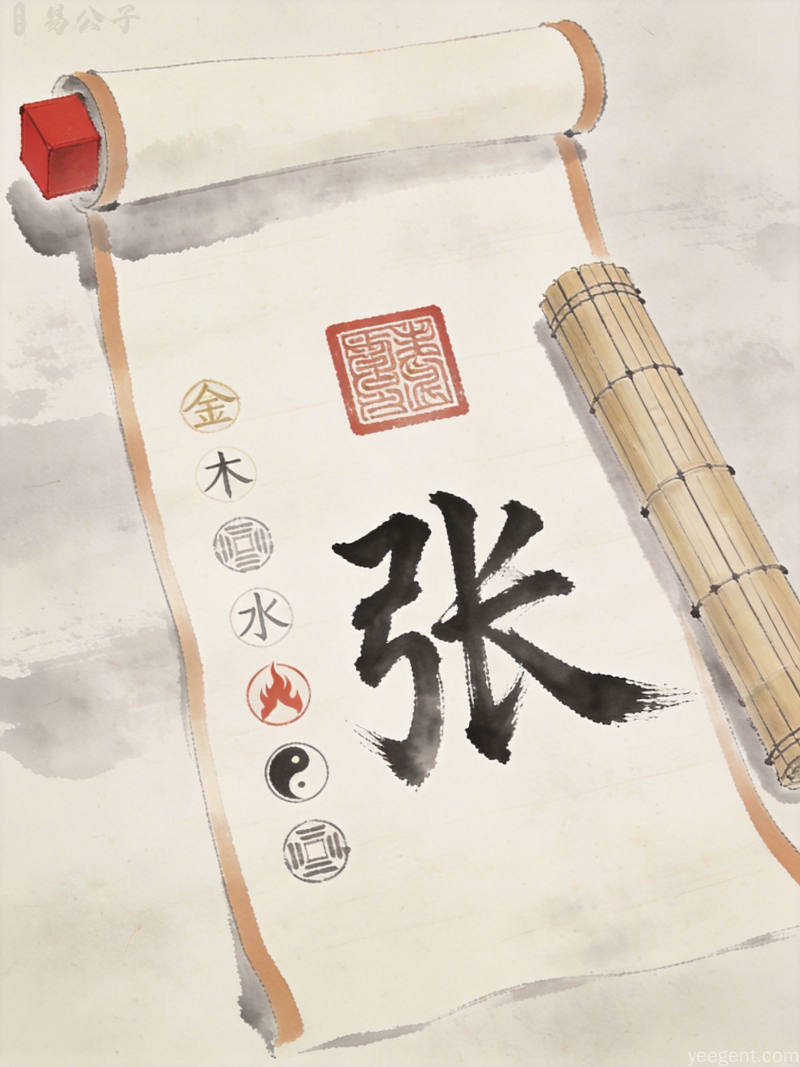 易公子
金
木
水
张
yeegent.com